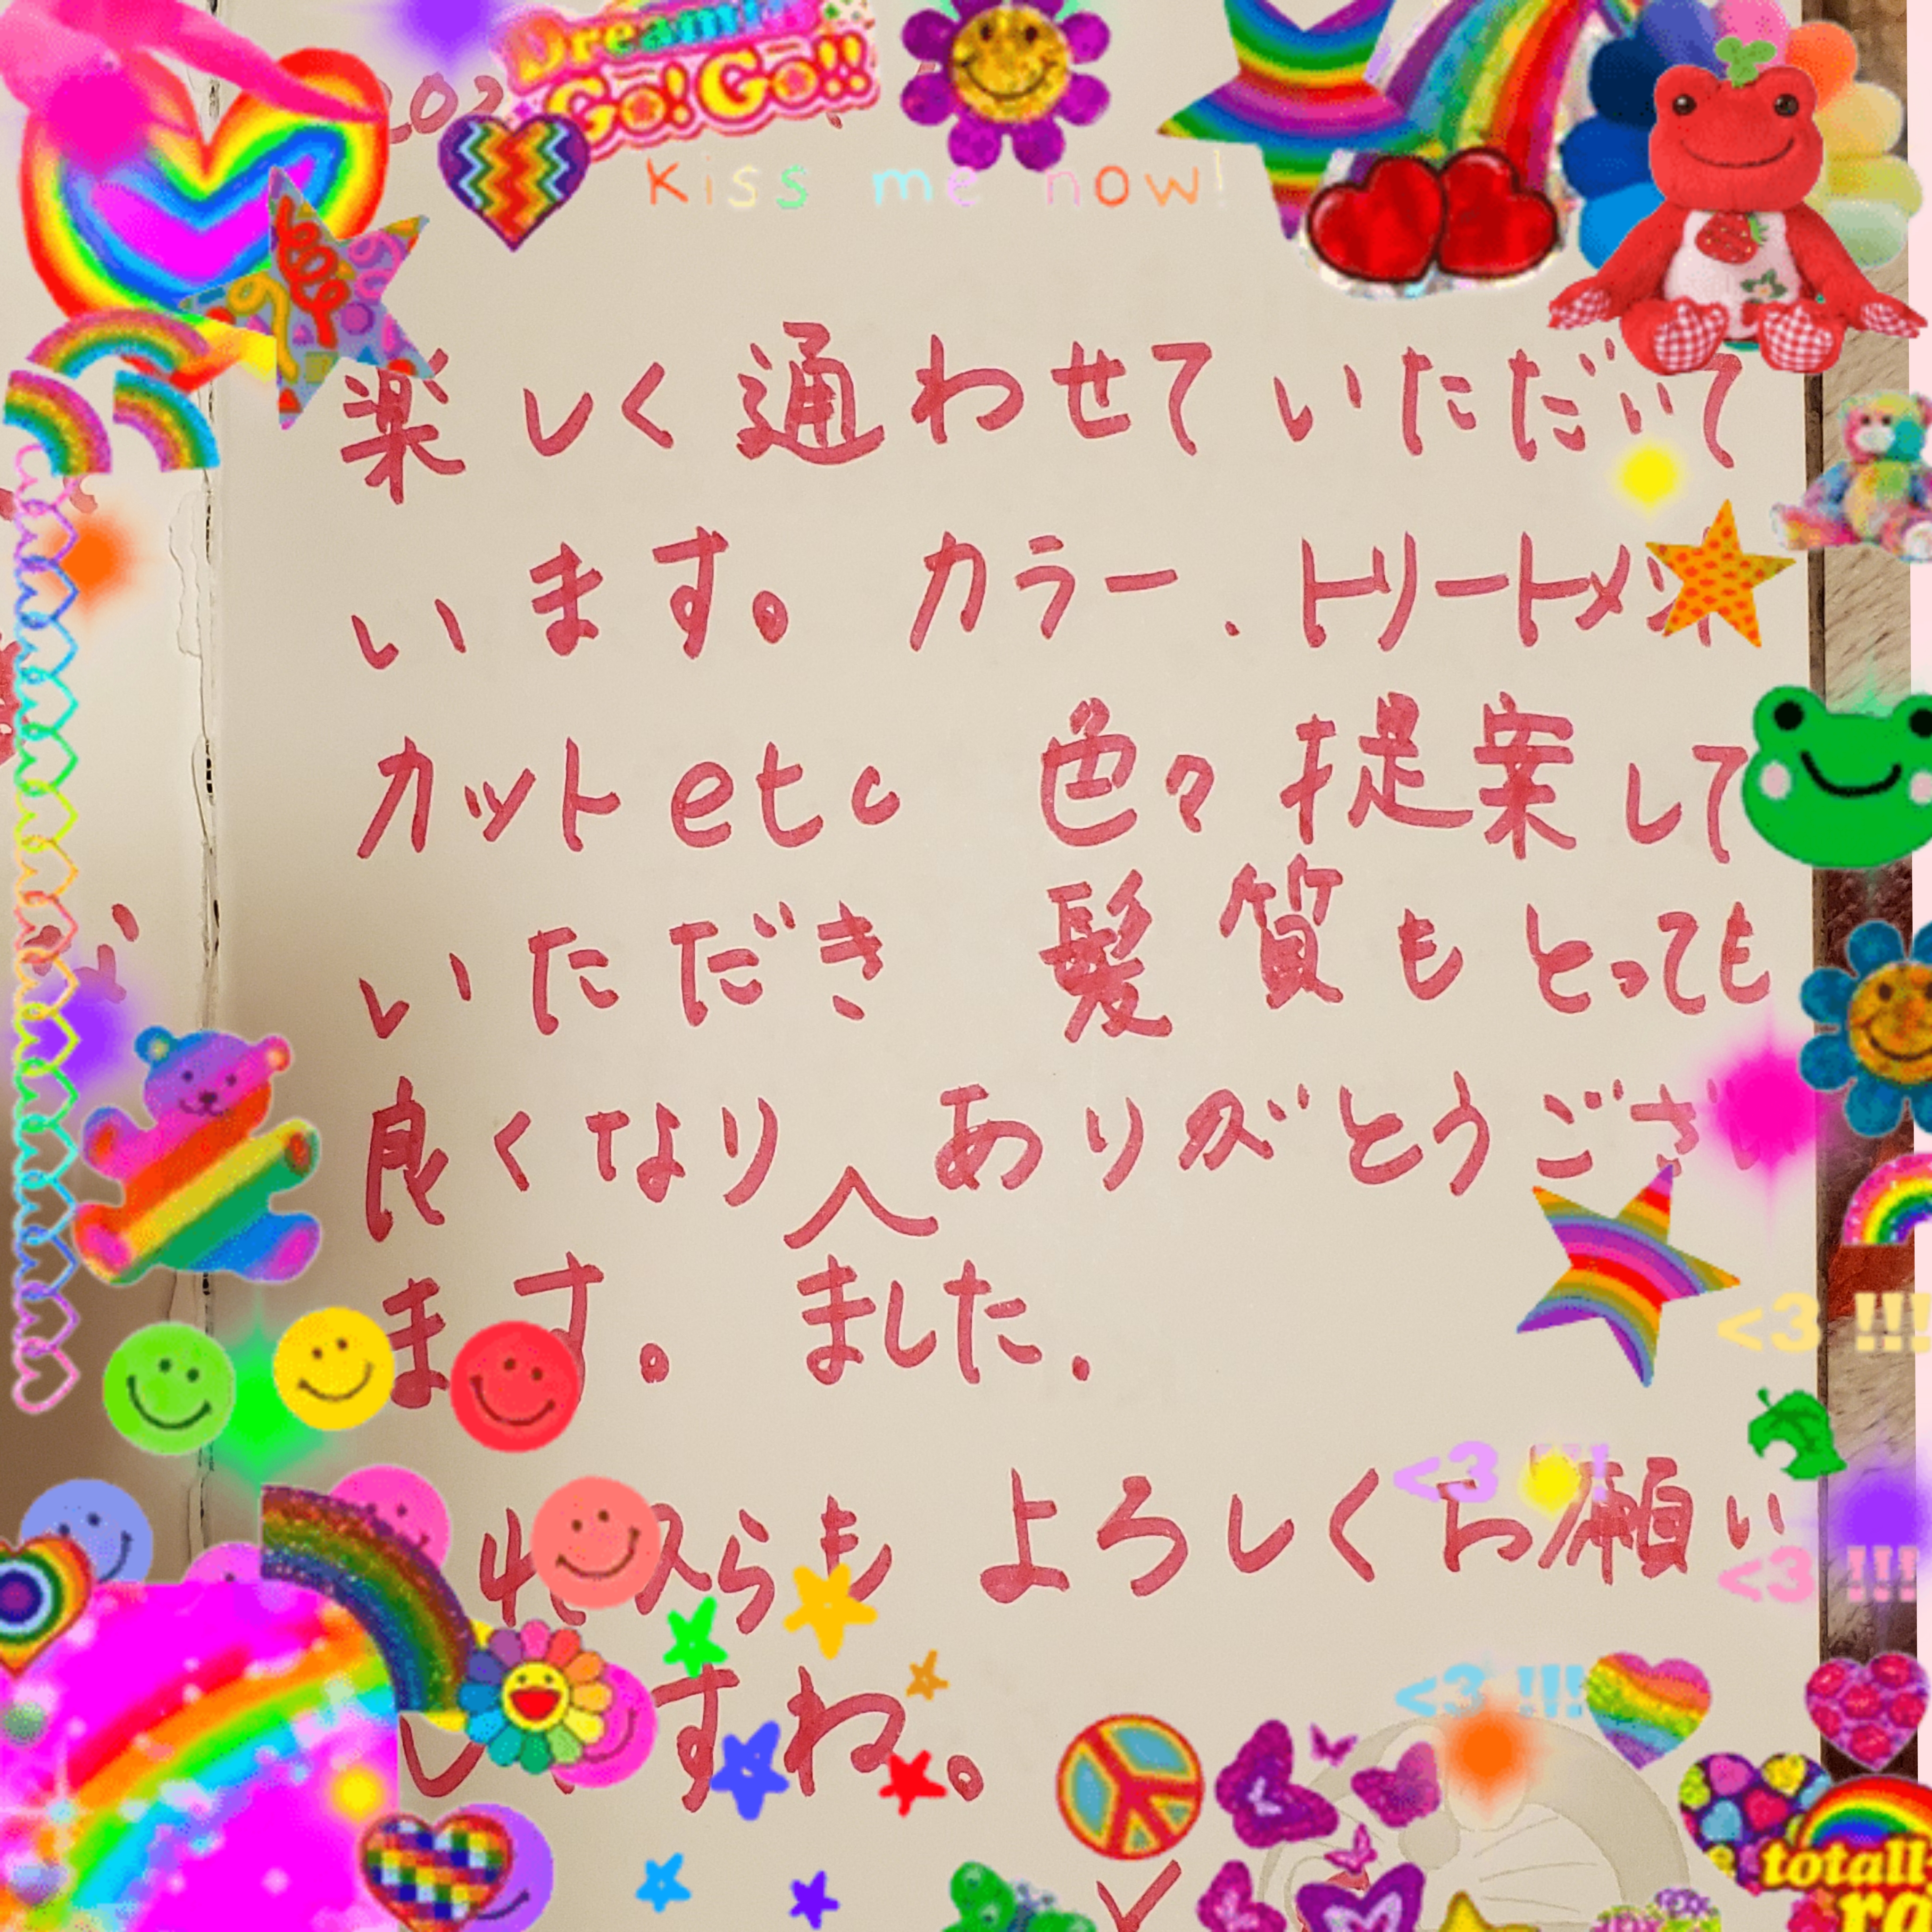 Dreamin
Go! Go!!
202
Kiss me now!
楽しく通わせていただいて
います。カラー.トリートメント
カット etc 色々提案して
いただき 髪質もとっても
良くなり ありがとうござ
ます。 ました.
<3 !!!
<3 !!!
らも よろしくお願い
<3 !!!
すね。
<3 !!!
totall